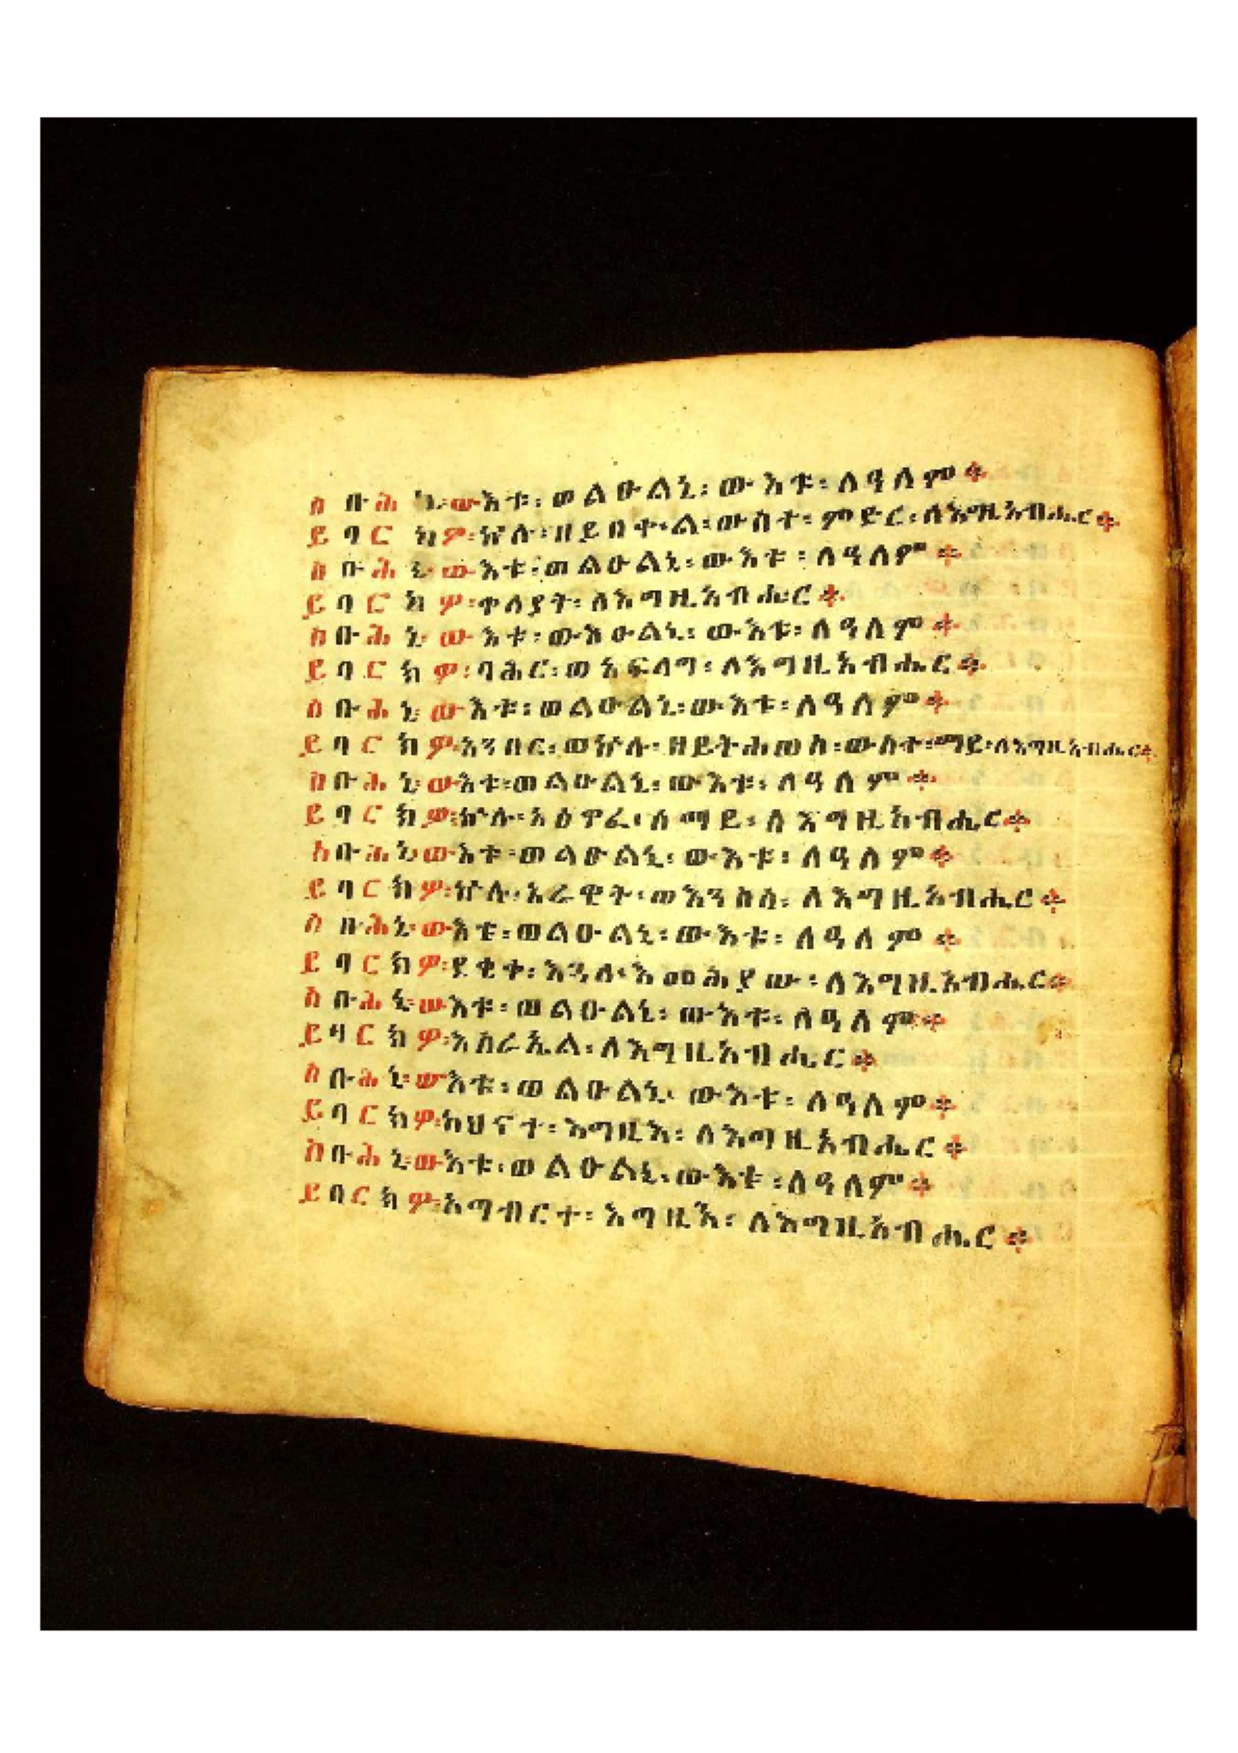 ስቡሕኒ፡ውእቱ፡ወልዑልኒ፡ውእቱ፡ለዓለም።
ይባርክዎ፡ኵሉ፡ዘይበቍል፡ውስተ፡ምድር፡ለእግዚአብሔር።
ስቡሕኒ፡ውእቱ፡ወልዑልኒ፡ውእቱ፡ለዓለም።
ይባርክዎ፡ቀላያት፡ለእግዚአብሔር።
ስቡሕኒ፡ውእቱ፡ውእዑልኒ፡ውእቱ፡ለዓለም።
ይባርክዎ፡ባሕር፡ወአፍላግ፡ለእግዚአብሔር።
ስቡሕኒ፡ውእቱ፡ወልዑልኒ፡ውእቱ፡ለዓለም።
ይባርክዎ፡አንበር፡ወኵሉ፡ዘይትሐወስ፡ውስተ፡ማይ፡ለእግዚአብሔር።
ስቡሕኒ፡ውእቱ፡ወልዑልኒ፡ውእቱ፡ለዓለም።
ይባርክዎ፡ኵሉ፡አዕዋፈ፡ሰማይ፡ለእግዚአብሔር።
ስቡሕኒ፡ውእቱ፡ወልዑልኒ፡ውእቱ፡ለዓለም።
ይባርክዎ፡ኵሉ፡አራዊት፡ወእንስሳ፡ለእግዚአብሔር።
ስቡሕኒ፡ውእቱ፡ወልዑልኒ፡ውእቱ፡ለዓለም።
ይባርክዎ፡ደቂቀ፡እጓለ፡እመሕያው፡ለእግዚአብሔር።
ስቡሕኒ፡ውእቱ፡ወልዑልኒ፡ውእቱ፡ለዓለም።
ይባርክዎ፡እስራኤል፡ለእግዚአብሔር።
ስቡሕኒ፡ውእቱ፡ወልዑልኒ፡ውእቱ፡ለዓለም።
ይባርክዎ፡ካህናተ፡እግዚእ፡ለእግዚአብሔር።
ስቡሕኒ፡ውእቱ፡ወልዑልኒ፡ውእቱ፡ለዓለም።
ይባርክዎ፡አግብርተ፡እግዚእ፡ለእግዚአብሔር።